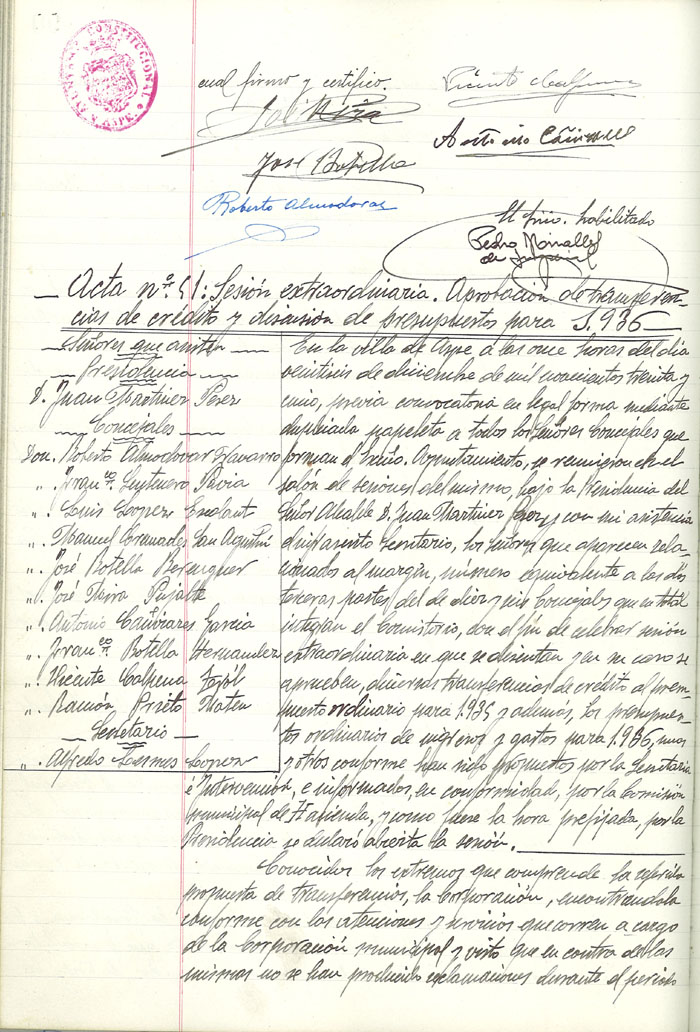 AYUNTAMIENTO CONSTITUCIONAL ASPE
cual firmo y certifico.
Vicente Calpena
José
Antonio Cañizares
José Botella
Roberto Almodovar
El srio. habilitado
Pedro
de
Acta nº 51: Sesión extraordinaria. Aprobación de transferen-
cias de crédito y discusión de presupuestos para 1.936
Señores que asisten
Presidencia
D. Juan Martinez Perez
Concejales
Don. Roberto Almodovar Navarro
". Franco. Pavia
". Luis Lopez
". Manuel Granades San Agustín
". José Botella Berenguer
". José Pujalte
". Antonio Cañizares García
". Franco. Botella Hernandez
". Vicente Calpena
". Ramón Prieto Mateu
Secretario
". Alfredo Lopez
En la villa de Aspe a las once horas del dia
veintiseis de diciembre de mil novecientos treinta y
cinco, previa convocatoria en legal forma mediante
duplicada papeleta a todos los señores Concejales que
forman el Ayuntamiento, se reunieron en el
salon de sesiones del mismo, bajo la Presidencia del
Señor Alcalde D. Juan Martinez Perez y con mi asistencia
secretario, los señores que aparecen rela-
cionados al margen, número equivalente a las dos
terceras partes del de diez y seis Concejales que en total
integran el Consistorio, con el fin de celebrar sesión
extraordinaria en que se discutan y en su caso se
aprueben, diversas transferencias de crédito al presu-
puesto ordinario para 1.935 y además, los presupues-
tos ordinarios de ingresos y gastos para 1.936, unas
y otros conforme han sido propuestos por la Secretaria
é Intervención, e informados, en conformidad, por la Comisión
municipal de Hacienda, y como fuese la hora prefijada, por la
Presidencia se declaró abierta la sesión.
Conocidos los extremos que comprende la referida
propuesta de transferencias, la Corporación, encontrandola
conforme con las atenciones y servicios que corren a cargo
de la Corporación municipal y visto que en contra de las
mismas no se han producido reclamaciones durante el periodo